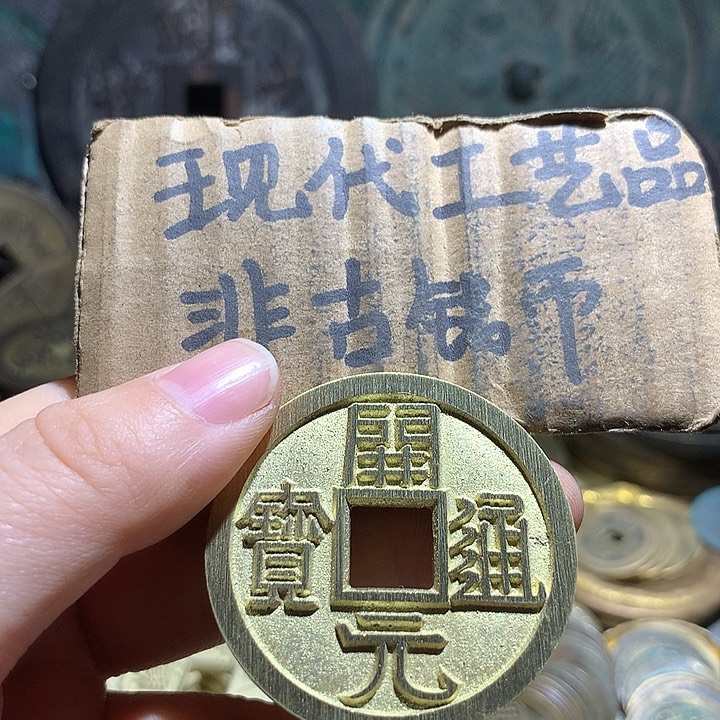 现代工艺品
非古钱币
開元通寶